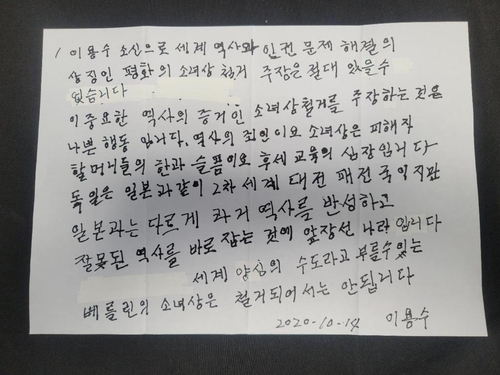 이용수 소신으로 세계 역사와 인권 문제 해결의
상징인 평화의 소녀상 철거 주장은 절대 있을수
없습니다
이 중요한 역사의 증거인 소녀상철거를 주장하는 것은
나뿐 행동 입니다. 역사의 죄인이요 소녀상은 피해자
할머니들의 한과 슬픔이요 후세 교육의 심장입니다
독일은 일본과같이 2차 세계 대전 패전국이지만
일본과는 다르게 과거 역사를 반성하고
잘못된 역사를 바로 잡는 것에 앞장선 나라입니다
세계 양심의 수도라고 부를수있는
베를린의 소녀상은 철거되어서는 안됩니다
2020-10-14 이용수